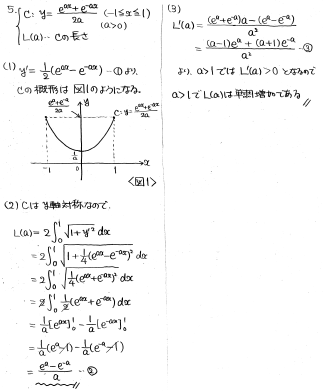 5. { C: y = (e^{ax}+e^{-ax})/2a (-1≦x≦1) (a>0)
L(a)… Cの長さ
(1) y' = 1/2(e^{ax}-e^{-ax}) -① より、
Cの概形は図1のようになる。
y
(e^a+e^{-a})/2a
C: y=(e^{ax}+e^{-ax})/2a
1/a
-1 0 1 x
<図1>
(2) Cはy軸対称なので、
L(a) = 2∫_0^1 √(1+y'^2) dx
= 2∫_0^1 √(1+1/4(e^{ax}-e^{-ax})^2) dx
= 2∫_0^1 √(1/4(e^{ax}+e^{-ax})^2) dx
= 2∫_0^1 1/2(e^{ax}+e^{-ax}) dx
= 1/a[e^{ax}]_0^1 - 1/a[e^{-ax}]_0^1
= 1/a(e^a-1) - 1/a(e^{-a}-1)
= (e^a-e^{-a})/a …②
(3)
L'(a) = ((e^a+e^{-a})a-(e^a-e^{-a}))/a^2
= ((a-1)e^a+(a+1)e^{-a})/a^2 -③
より、a>1では L'(a)>0 となるので
a>1で L(a)は単調増加である